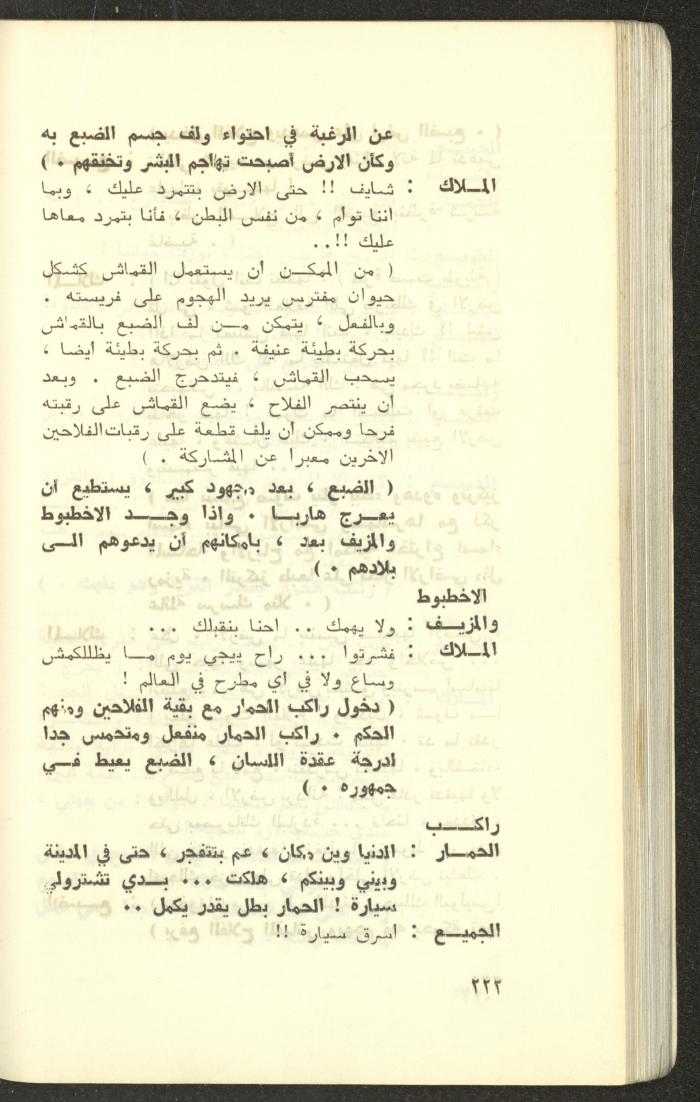 عن الرغبة في احتواء ولف جسم الضبع به
وكأن الارض أصبحت تهاجم البشر وتخنقهم . )
المـلاك : شايف !! حتى الارض بتتمرد عليك ، وبما
اننا توأم ، من نفس البطن ، فأنا بتمرد معاها
عليك !!..
( من الممكـــن أن يستعمل القماش كشكل
حيوان مفترس يريد الهجوم على فريسته .
وبالفعل ، يتمكن مـــن لف الضبع بالقماش
بحركة بطيئة عنيفة . ثم بحركة بطيئة أيضا ،
يسحب القماش ، فيتدحرج الضبع . وبعد
أن ينتصر الفلاح ، يضع القماش على رقبته
فرحا وممكن أن يلف قطعة على رقبات الفلاحين
الاخرين معبرا عن المشاركة . )
( الضبع ، بعد مجهود كبير ، يستطيع أن
يعـــرج هاربـــا . واذا وجـــد الاخطبوط
والمزيف بعد ، بامكانهم أن يدعوهم الـــى
بلادهم . )
الاخطبوط
والمزيـــف : ولا يهمك .. احنا بنقبلك ...
المـلاك : فشرتوا ... راح ييجي يوم مـــا يظللكمش
وساع ولا في أي مطرح في العالم !
( دخول راكب الحمار مع بقية الفلاحين ومنهم
الحكم . راكب الحمار منفعل ومتحمس جدا
لدرجة عقدة اللسان ، الضبع يعيط فـــي
جمهوره . )
راكـــب
الحمـــار : الدنيا وين مكان ، عم بتتفجر ، حتى في المدينة
وبيني وبينكم ، هلكت ... بـــدي تشترولي
سيارة ! الحمار بطل يقدر يكمل ..
الجميـــع : أسرق سيارة !!
٢٢٣